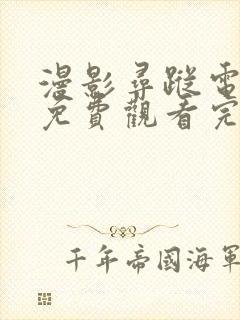 漫影尋蹤電
免費觀看完
千年帝國海軍